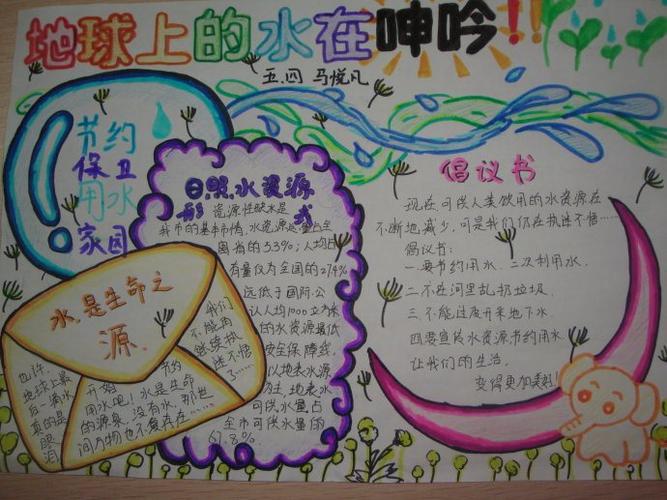 地球上的水在呻吟!!
五.四 马悦凡
节约
保卫
用水
家园
日照水资源
形 资源性缺水是 式
我市的基本市情,水资源总量占全
国省的5.53%;人均占
有量仅为全国的27.4%
远低于国际公
认人均1000立方米
的水资源最低
安全保障线,
以地表水源
为主,地表水
可供水量占
全市可供水量的
67.8%。
倡议书
现在可供人类饮用的水资源在
不断地减少,可是我们仍在执迷不悟……
倡议书:
一.要节约用水,二次利用水.
二.不在河里乱扔垃圾.
三.不能过度开采地下水.
四.要宣传水资源节约用水
让我们的生活,
变得更加美好!
水,是生命之
源.
也许,
地球上最
后一滴水
真的是
眼泪
开始 节约
用水吧!水是生命
的源泉,没有水,那世
间万物也不复存在……
我们
不能再
继续执
迷不悟
了……